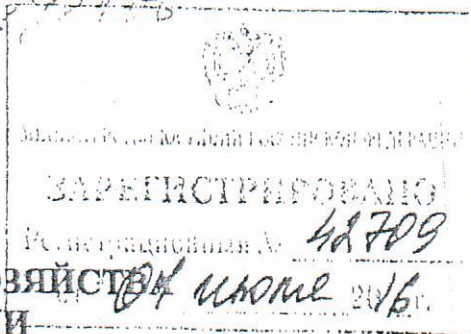 МИНИСТЕРСТВО ЮСТИЦИИ РОССИЙСКОЙ ФЕДЕРАЦИИ
ЗАРЕГИСТРИРОВАНО
Регистрационный № 42709
зяйства 04 июля 2016 г.